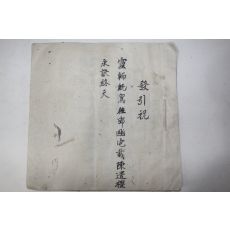 發引祝
靈輀旣駕徃卽幽宅載陳遣禮
永訣終天